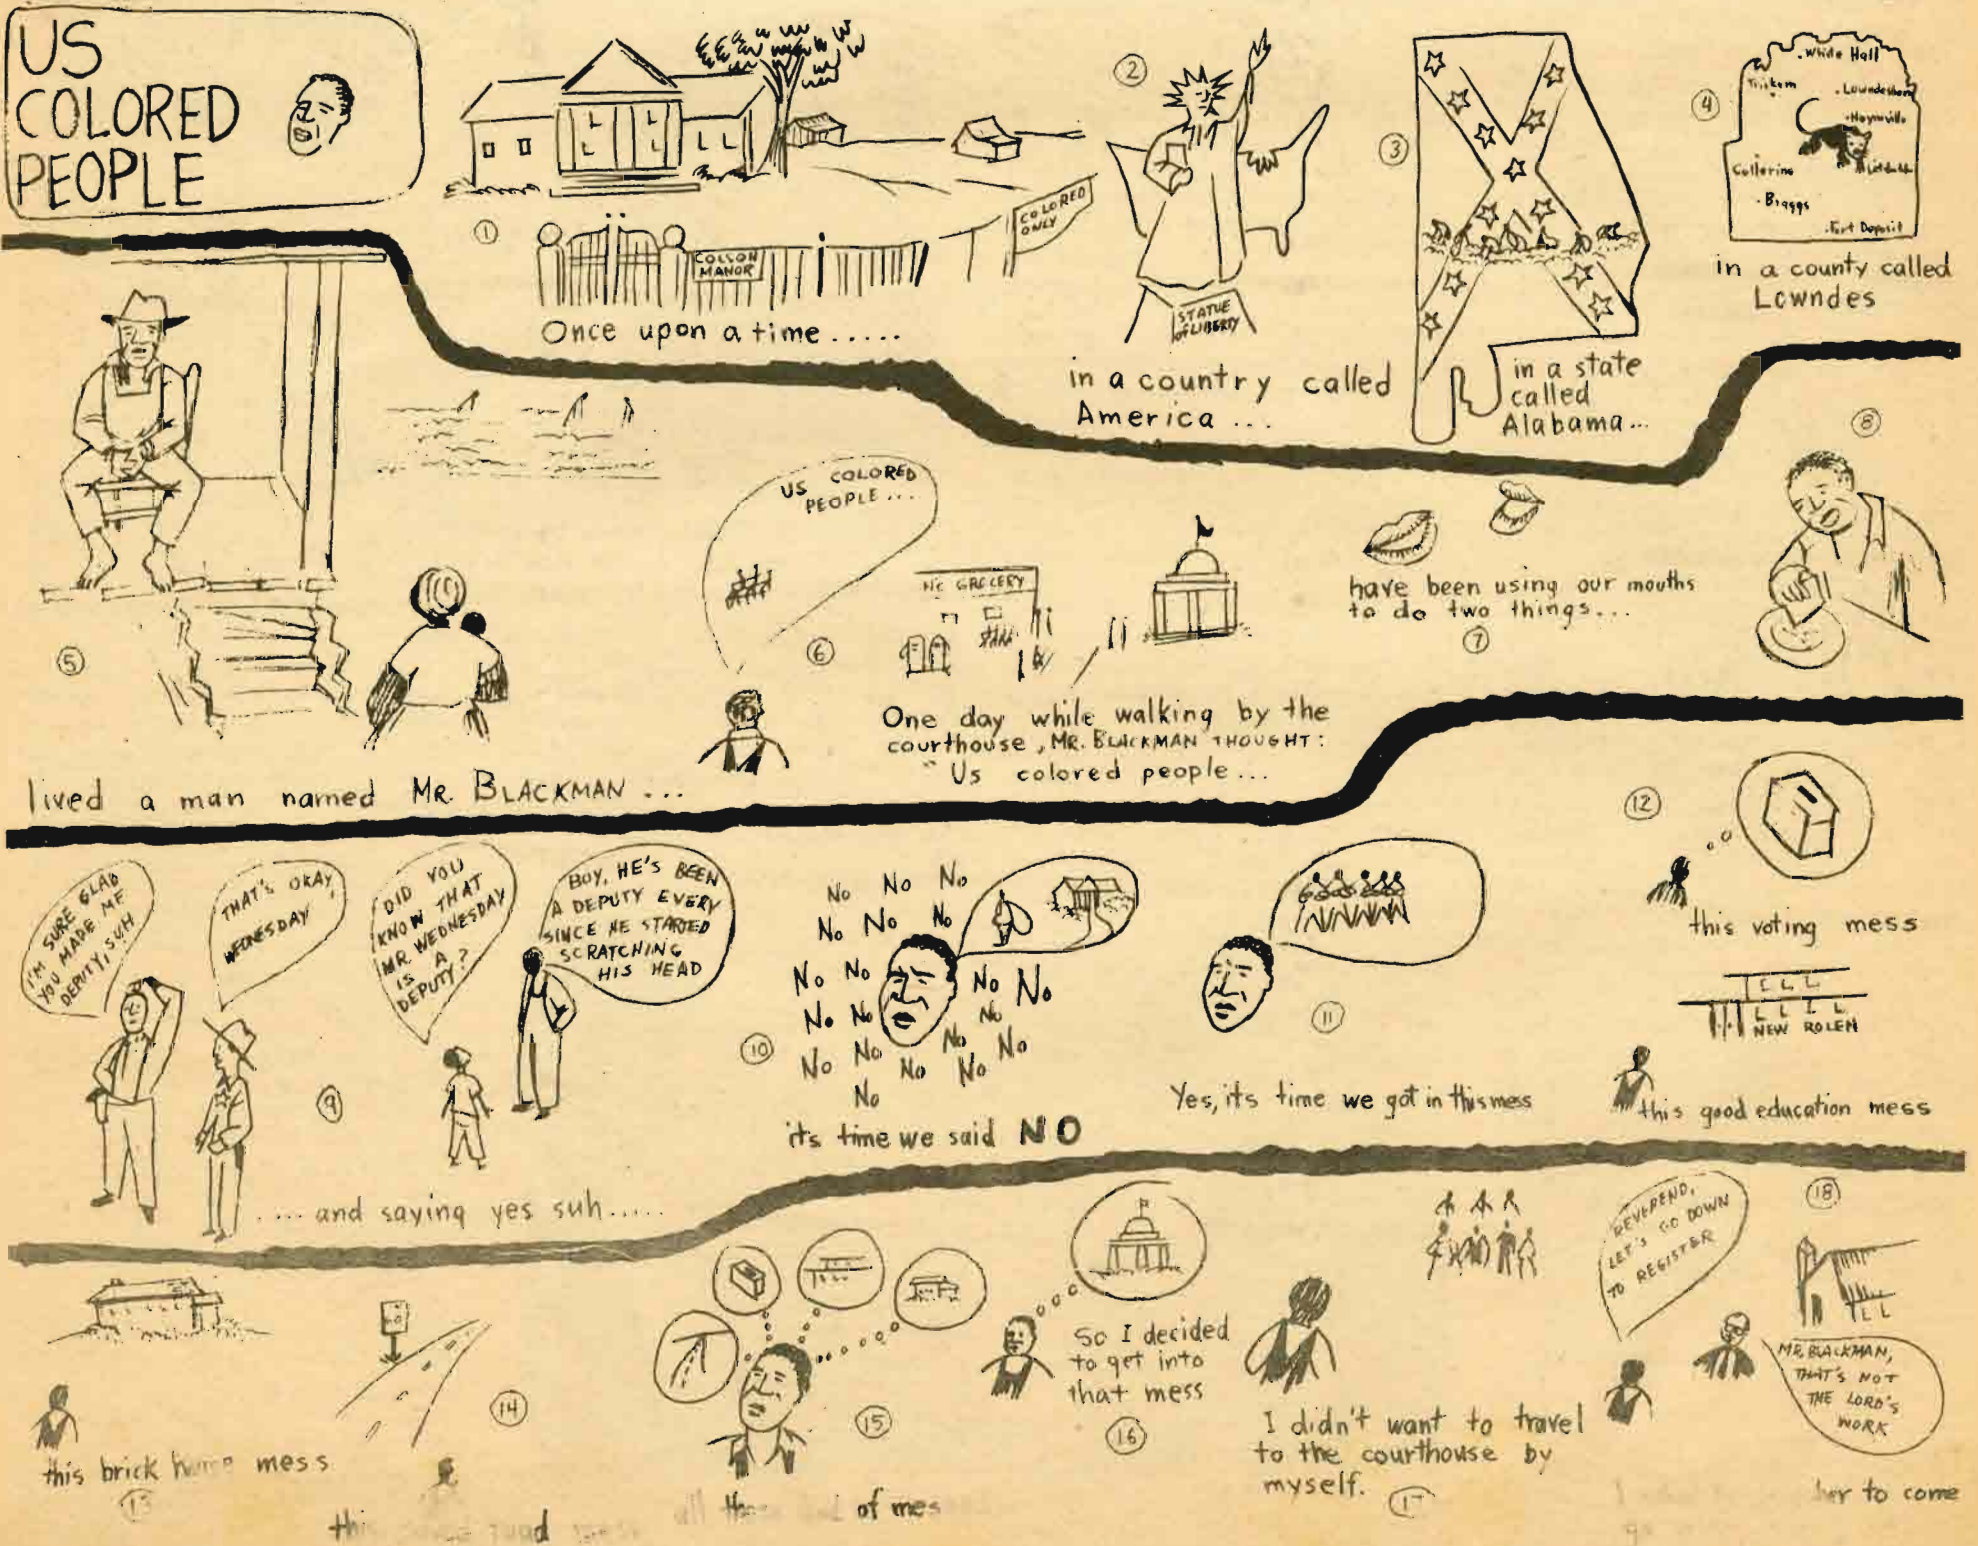 US
COLORED
PEOPLE
1
COLSON
MANOR
COLORED
ONLY
Once upon a time.....
2
STATUE
of LIBERTY
in a country called
America ...
3
in a state
called
Alabama...
4
White Hall
Trickem
Lowndesboro
Hayneville
Collerine
Braggs
Fort Deposit
in a county called
Lowndes
5
lived a man named MR. BLACKMAN ...
US COLORED
PEOPLE....
6
GROCERY
One day while walking by the
courthouse, MR. BLACKMAN THOUGHT:
"Us colored people...
have been using our mouths
to do two things...
7
8
I'M SURE GLAD
YOU MADE ME
DEPUTY, SUH
THAT'S OKAY,
WEDNESDAY
DID YOU
KNOW THAT
MR. WEDNESDAY
IS A
DEPUTY?
BOY, HE'S BEEN
A DEPUTY EVERY
SINCE HE STARTED
SCRATCHING
HIS HEAD
9
....and saying yes suh.....
10
No No No
No No No
No No No No
No No No
No No No No
No No
No
its time we said NO
11
Yes, its time we got in this mess
12
this voting mess
NEW ROLEN
this good education mess
this brick mess
13
14
15
of mes
16
So I decided
to get into
that mess
I didn't want to travel
to the courthouse by
myself.
17
18
REVEREND,
LET'S GO DOWN
TO REGISTER
MR. BLACKMAN,
THAT'S NOT
THE LORD'S
WORK
to come